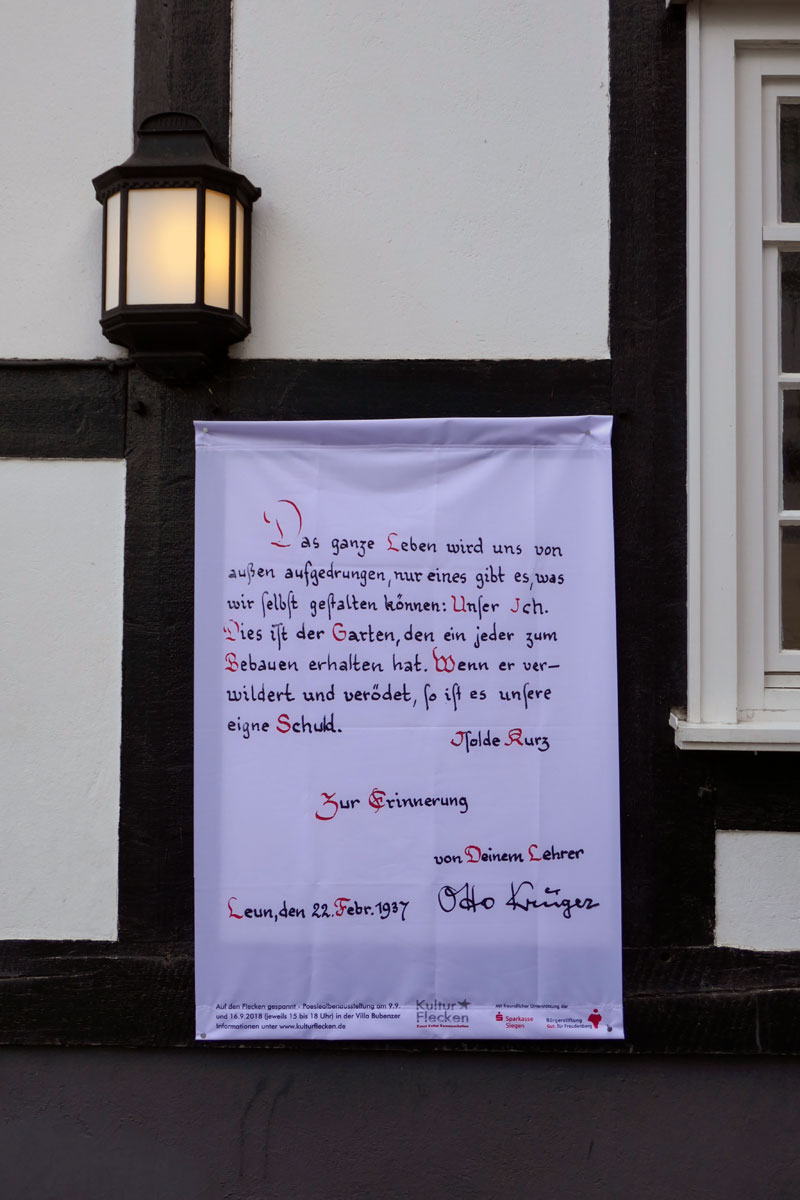 Das ganze Leben wird uns von
außen aufgedrungen, nur eines gibt es, was
wir ſelbſt geſtalten können: Unſer Ich.
Dies iſt der Garten, den ein jeder zum
Bebauen erhalten hat. Wenn er ver-
wildert und verödet, ſo iſt es unſere
eigne Schuld.
Iſolde Kurz
Zur Erinnerung
von Deinem Lehrer
Leun, den 22. Febr. 1937 Otto Krüger
Auf den Flecken gespannt - Poesiealbenausstellung am 9.9.
und 16.9.2018 (jeweils 15 bis 18 Uhr) in der Villa Bubenzer
Informationen unter www.kulturflecken.de
Kultur
Flecken
Kunst Kultur Kommunikation
Mit freundlicher Unterstützung der
Sparkasse
Siegen
Bürgerstiftung
Gut. für Freudenberg